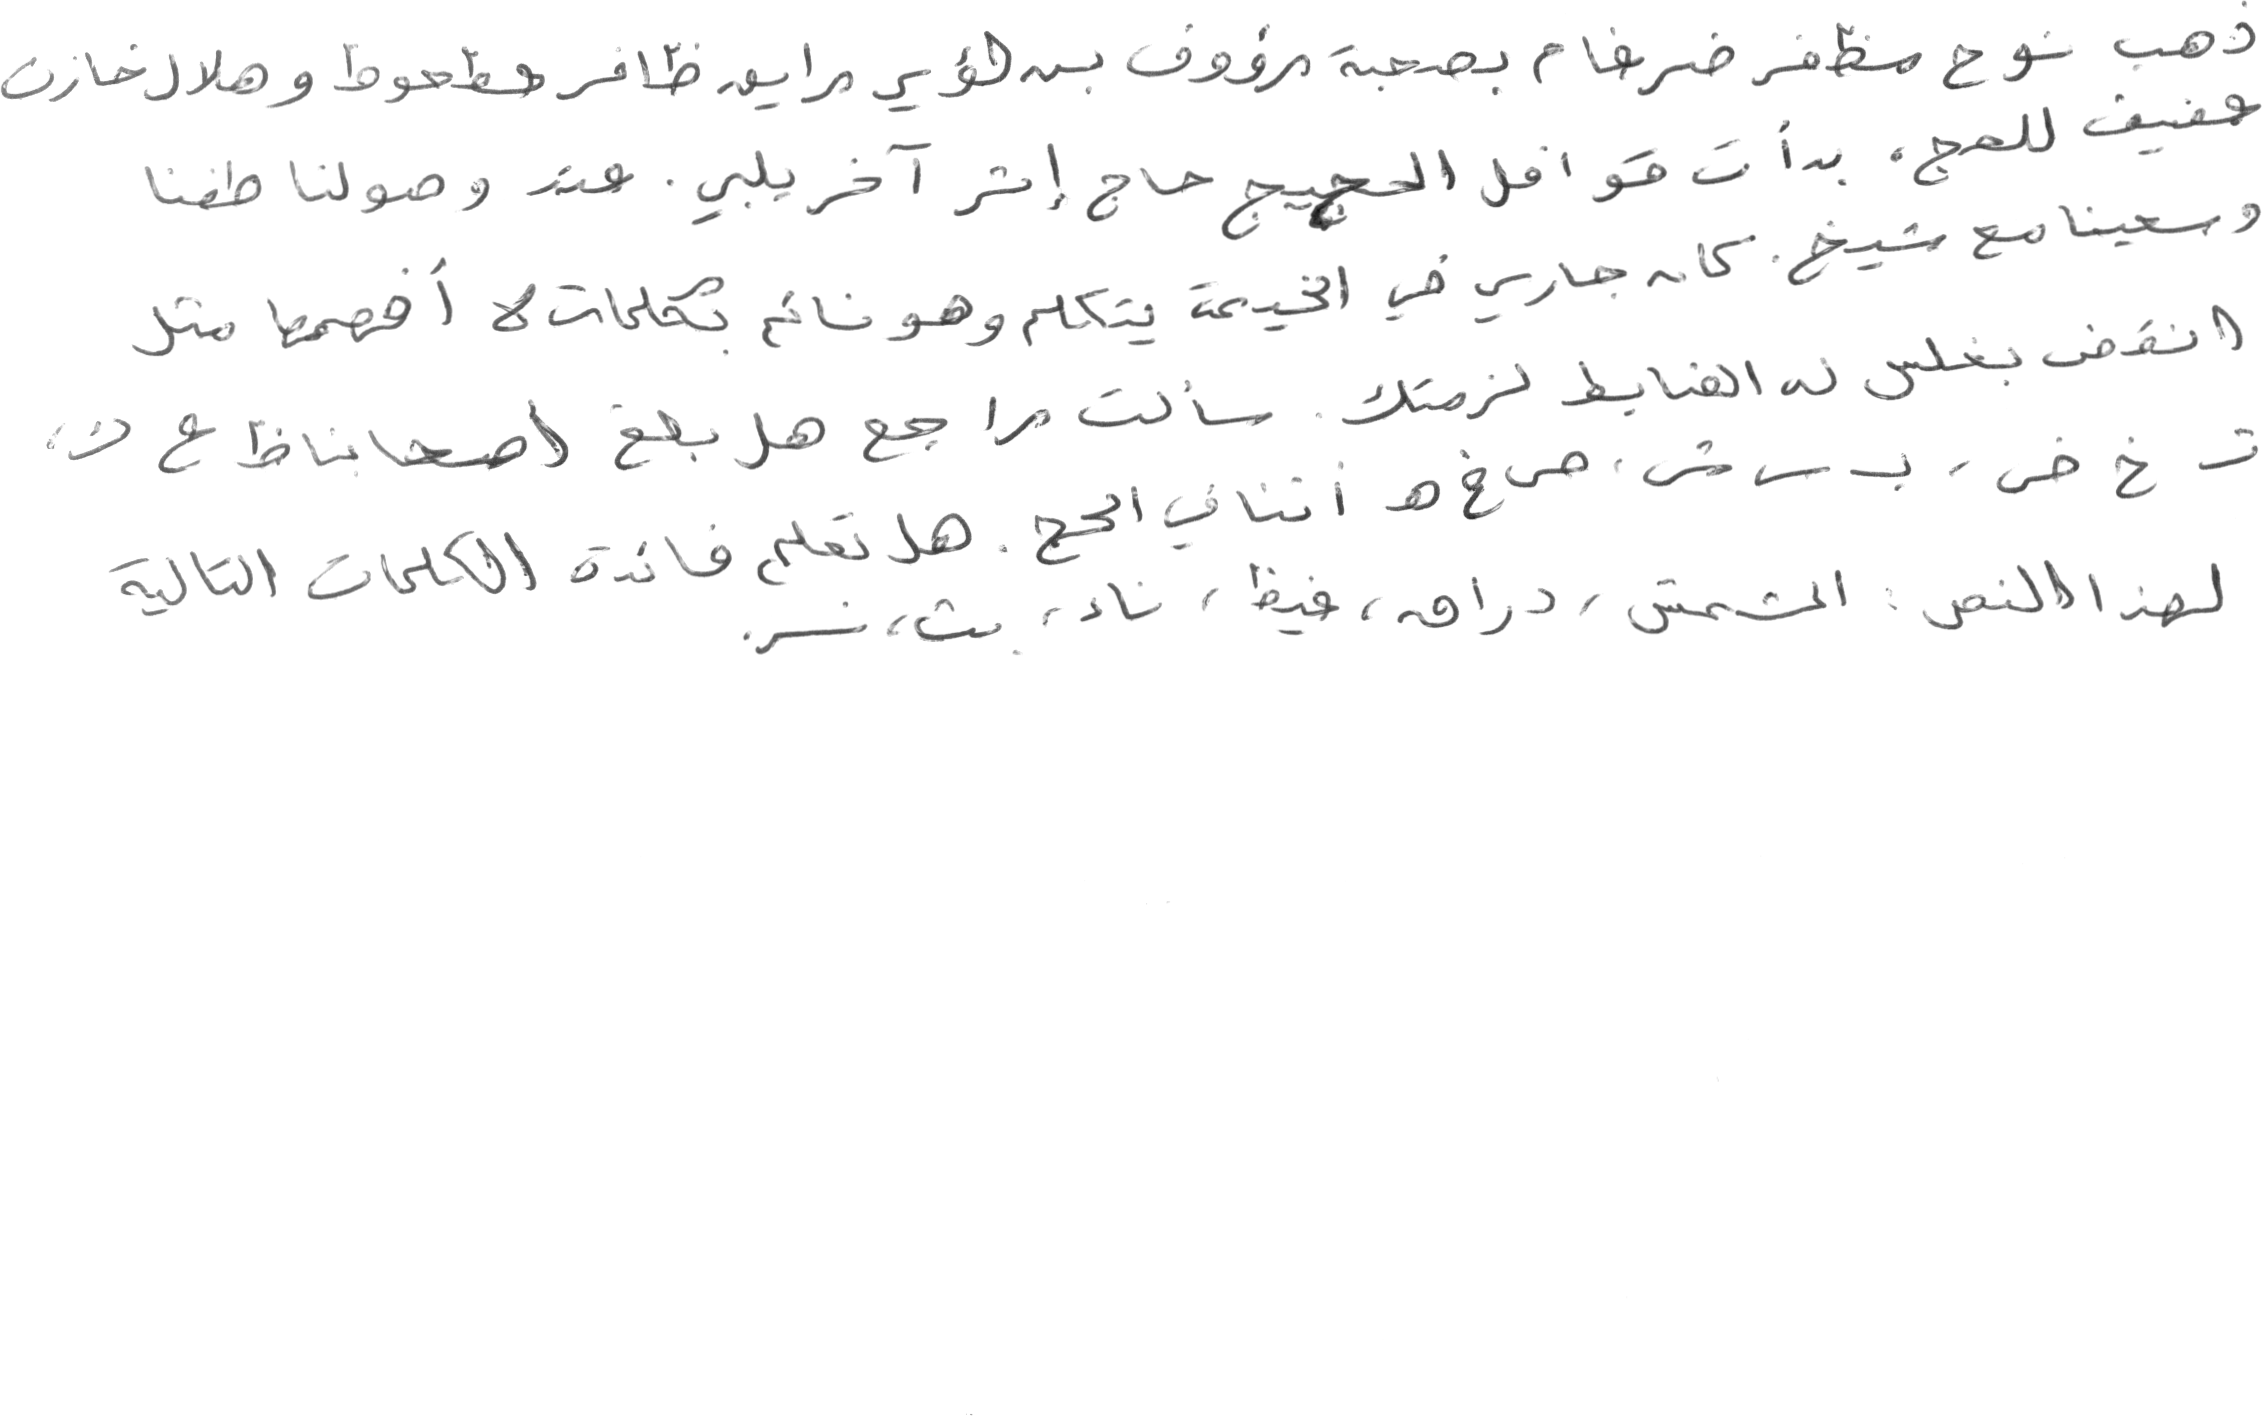 ذهب نوح مظفر ضرغام بصحبة رؤوف بن لؤي رايق ظافر عطعوط و هلال خازن
عفيف للحج. بدأت قوافل الحجيج حاج إثر آخر يلبي. عند وصولنا طفنا
وسعينا مع شيخ. كان جاري في الخيمة يتكلم وهو نائم بكلمات لا أفهمها مثل
انقض بغلس له الضابط لزمتك. سألت راجح هل بلغ أصحابنا ظ ع ن،
ت خ ض، ب س ش، ص غ هـ أثنا في الحج. هل تعلم فائدة الكلمات التالية
لهذا النص: المشمش، دراق، غيظ، ناء، بث، نسر.